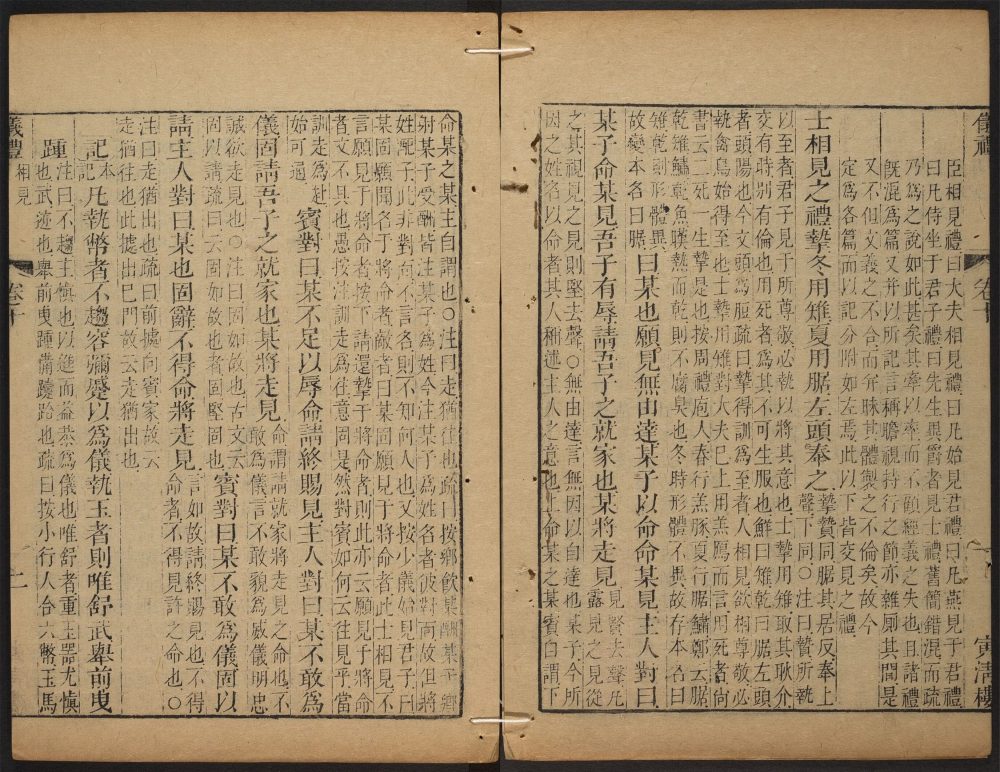 儀禮 卷十 一 寅清樓
臣相見禮曰大夫相見禮曰凡始見君禮曰凡燕見于君禮
曰凡侍坐于君子禮曰先生異爵者見士禮舊簡錯混而疏
乃為之說如此甚矣其牽以牽而不顧經義之失也且諸禮
既混為篇又并以所記言稱瞻視持行之節亦雜厠其間是
又不但文義之不合而并昧其體製之不倫矣故今
定為各篇而以記分附如左焉此以下皆交見之禮
士相見之禮摯冬用雉夏用腒左頭奉之摯贄同腒其居反奉上聲下同○注曰贄所執
以至者君子見于所尊敬必執以將其意也士摯用雉取其耿介
交有時別有倫也用死者為其不可生服也鮮曰雉乾曰腒左頭
者頭陽也今文頭為脰疏曰摯得訓為至者人相見欲相尊敬必
執禽鳥始得至也士摯用雉對大夫已上用羔鴈而言用死者尚
書云二死一生摯是也按周禮庖人春行羔豚夏行腒鱐鄭云腒
乾雉鱐乾魚暵熱而乾則不腐臭也冬時形體不異故存本名曰
雉乾則形體異故變本名曰腒曰某也願見無由達某子以命命某見主人對曰
某子命某見吾子有辱請吾子之就家也某將走見見賢去聲凡露見之見從
之其視見之見則堅去聲○無由達言無因以自達也某子今所
因之姓名以命者其人稱述主人之意也上命某之某賓自謂下
命某之某主自謂也○注曰走猶往也疏曰按鄉飲某酬某子鄉
射某子受酬皆注某子為姓今注某子為姓名者彼對面故但將
姓配子此非對面不言名則不知何人也又按少儀始見君子曰
某固願聞名于將命者敵者曰某固願見于將命者此士相見不
言願見于將命者按下請還摯于將命者則此亦云願見于將命
者文不具也愚按注訓走為往意固是然對賓如何云往見乎當
訓走為赴始可通賓對曰某不足以辱命請終賜見主人對曰某不敢為
儀固請吾子之就家也某將走見命謂請就家將走見之命也不敢為儀言不敢貌為威儀明忠
誠欲走見也○注曰固如故也古文云
固以請疏曰云固如故也者固堅固也賓對曰某不敢為儀固以
請主人對曰某也固辭不得命將走見言如故請終賜見也不得命者不得見許之命也○
注曰走猶出也疏曰前據向賓家故云
走猶往也此據出巳門故云走猶出也
記本記凡執幣者不趨容彌蹙以為儀執玉者則唯舒武舉前曳
踵注曰不趨主慎也以進而益恭為儀也唯舒者重玉器尤慎
也武迹也舉前曳踵備躓跲也疏曰按小行人合六幣玉馬
儀禮 相見 卷十 二